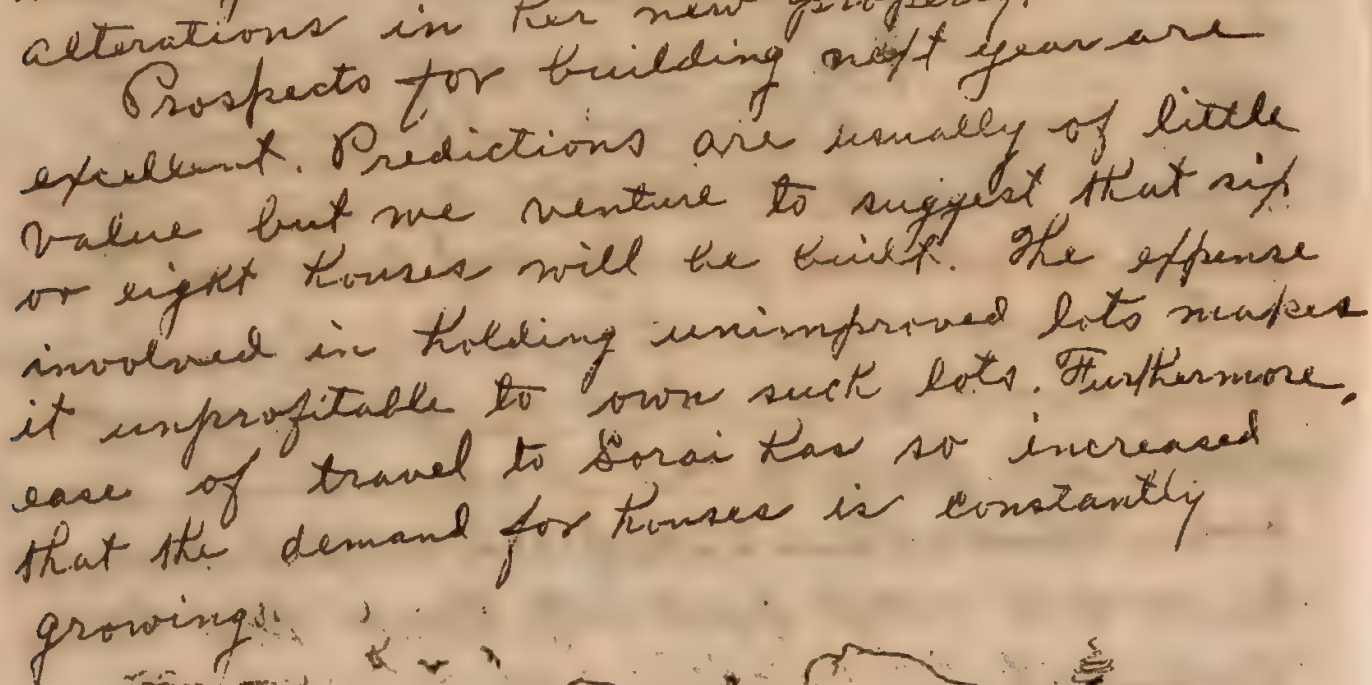 alterations in her new property.
Prospects for building next year are
excellent. Predictions are usually of little
value but we venture to suggest that six
or eight houses will be built. The expense
involved in holding unimproved lots makes
it unprofitable to own such lots. Furthermore,
ease of travel to Sorai has so increased
that the demand for houses is constantly
growing.